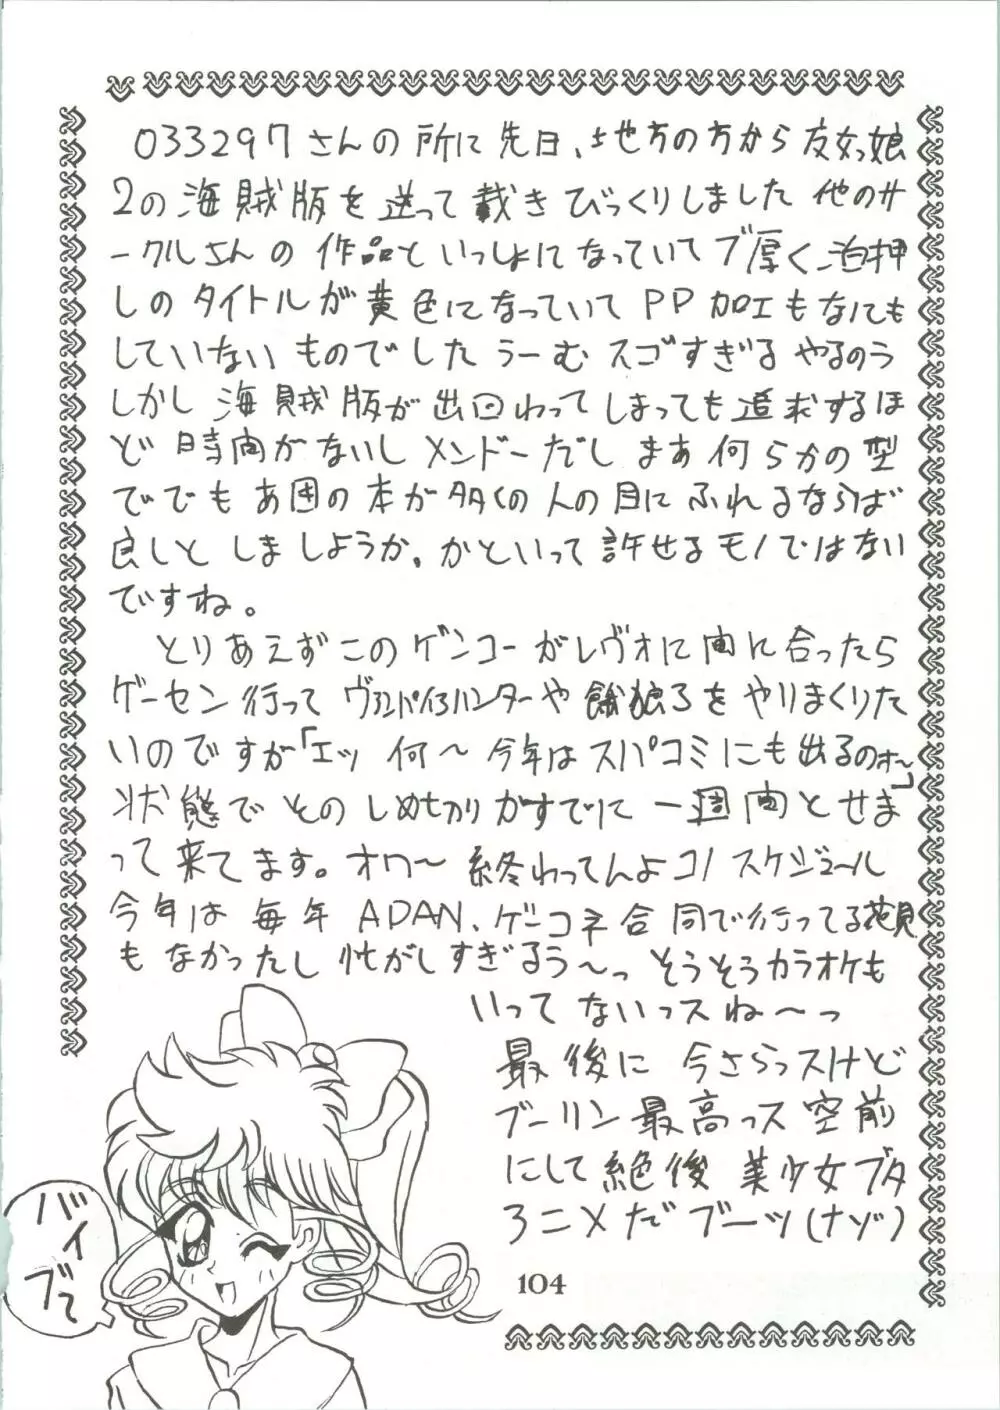 033297さんの所に先日、地方の方から友女っ娘
2の海賊版を送って戴きびっくりしました他のサ
ークルさんの作品といっしょになっていてブ厚く、泊押
しのタイトルが黄色になっていてPP加工もなにも
していないものでしたうーむスゴすぎるやるのう
しかし海賊版が出回わってしまっても追求するほ
ど時間がないしメンドーだしまあ何らかの型
ででもあ団の本が多くの人の目にふれるならば
良しとしましょうか。かといって許せるモノではない
ですね。
とりあえずこのゲンコーがレヴォに間に合ったら
ゲーセン行ってヴァンパイアハンターや餓狼3をやりまくりた
いのですが「エッ何〜今年はスパコミにも出るのォ〜」
状態でそのしめきりがすでに一週間とせま
って来てます。オワ〜終わってんよコノスケジュール
今年は毎年ADAN、ゲーコネ合同で行ってる花見
もなかったし忙がしすぎるう〜っそうそうカラオケも
いってないっスね〜っ
最後に今さらっスけど
ブーリン最高っス空前
にして絶後美少女ブタ
アニメだブーッ(ナゾ)
バイブて
104